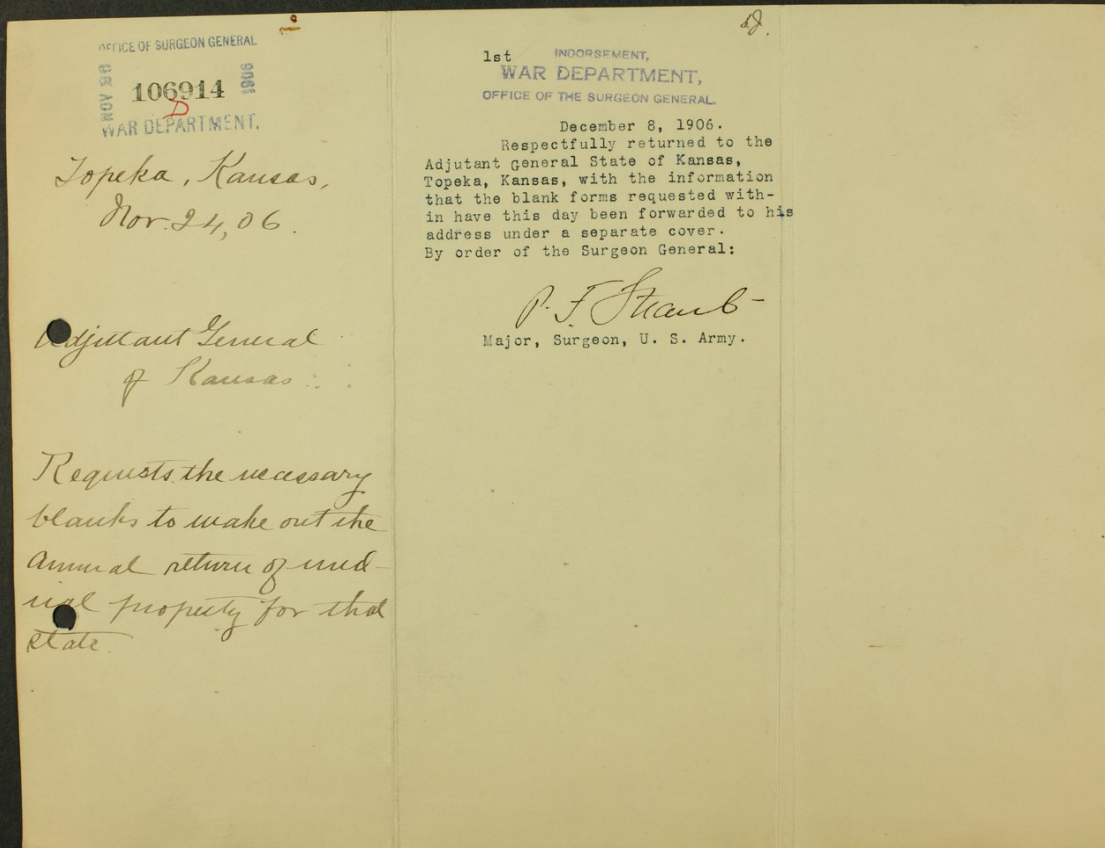 OFFICE OF SURGEON GENERAL
NOV 1906
106914
D
WAR DEPARTMENT.
Topeka, Kansas,
Nov. 24, 06.
Adjutant General
of Kansas
Requests the necessary
blanks to make out the
annual return of med-
ical property for that
state.
1st INDORSEMENT,
WAR DEPARTMENT,
OFFICE OF THE SURGEON GENERAL.
December 8, 1906.
Respectfully returned to the
Adjutant General State of Kansas,
Topeka, Kansas, with the information
that the blank forms requested with-
in have this day been forwarded to his
address under a separate cover.
By order of the Surgeon General:
P. F. Straub
Major, Surgeon, U. S. Army.